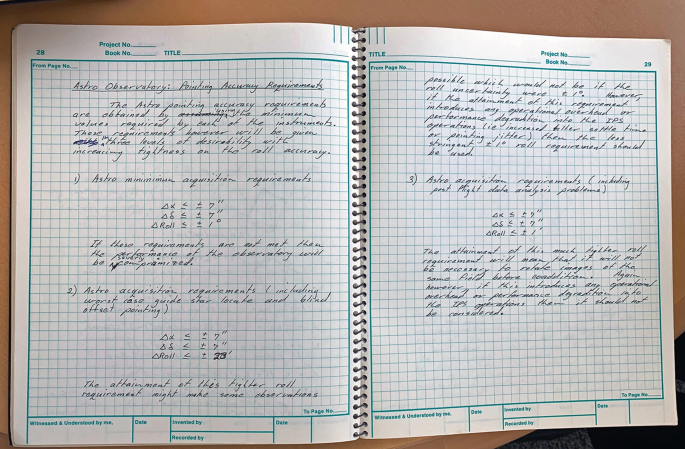 Project No.
28
Book No.
TITLE
From Page No.
Astro Observatory: Pointing Accuracy Requirements
The Astro pointing accuracy requirements
are obtained by using the minimum
values required by each of the instruments.
These requirements however will be given
in three levels of desirability with
increasing tightness on the roll accuracy.
1) Astro minimimum acquisition requirements
Δα ≤ ± 7"
Δδ ≤ ± 7"
ΔRoll ≤ ± 1°
If these requirements are not met then
the performance of the observatory will
be severely compromized.
2) Astro acquisition requirements (including
worst case guide star locate and blind
offset pointing)
Δα ≤ ± 7"
Δδ ≤ ± 7"
ΔRoll ≤ ±
The attainment of this tighter roll
requirement might make some observations
To Page No.
Witnessed & Understood by me,
Date
Invented by
Date
Recorded by
TITLE
Project No.
Book No.
29
From Page No.
possible which would not be if the
roll uncertainty were ± 1°. However,
if the attainment of this requirement
introduces any operational overhead or
performance degradation into the IPS
operations (ie increased filter settle time
or pointing jitter) then the less
stringent ± 1° roll requirement should
be used.
3) Astro acquisition requirements (including
post flight data analysis problems)
Δα ≤ ± 7"
Δδ ≤ ± 7"
ΔRoll ≤ ± 1'
The attainment of this much tighter roll
requirement will mean that it will not
be necessary to rotate images of the
same field before coaddition. Again
however if this introduces any operational
overhead or performance degradation into
the IPS operations then it should not
be considered.
To Page No.
Witnessed & Understood by me,
Date
Invented by
Date
Recorded by